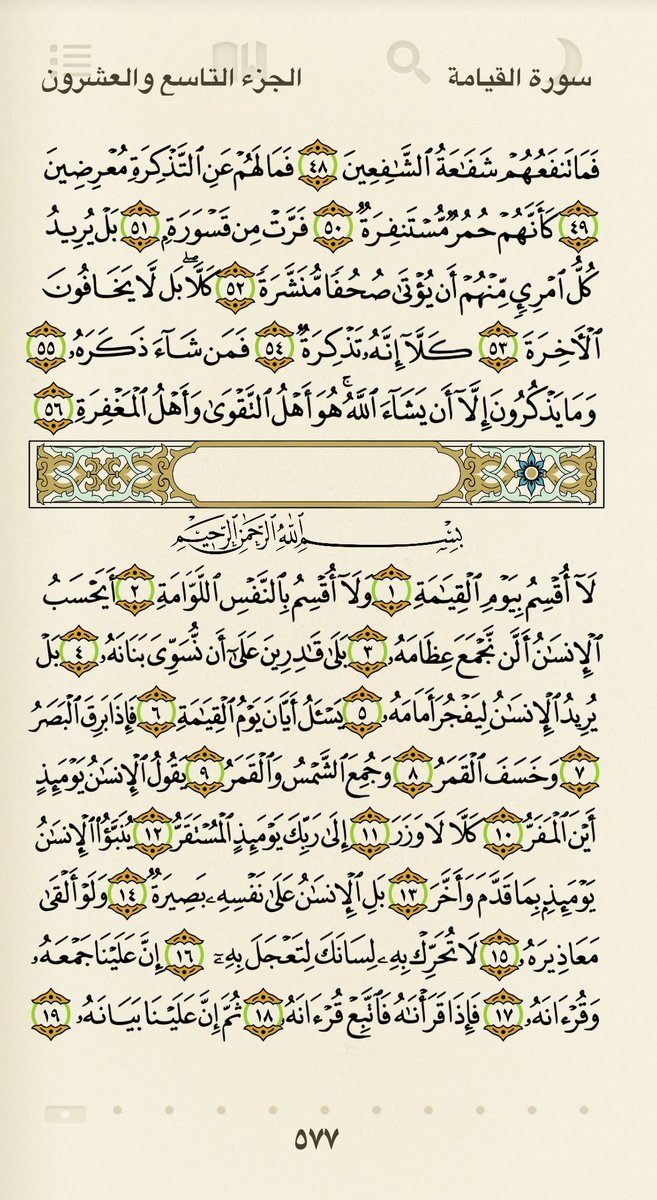 سورة القيامة الجزء التاسع والعشرون
فَمَا تَنفَعُهُمْ شَفَـٰعَةُ ٱلشَّـٰفِعِينَ ٤٨ فَمَا لَهُمْ عَنِ ٱلتَّذْكِرَةِ مُعْرِضِينَ
٤٩ كَأَنَّهُمْ حُمُرٌ مُّسْتَنفِرَةٌ ٥٠ فَرَّتْ مِن قَسْوَرَةٍۭ ٥١ بَلْ يُرِيدُ
كُلُّ ٱمْرِئٍ مِّنْهُمْ أَن يُؤْتَىٰ صُحُفًا مُّنَشَّرَةً ٥٢ كَلَّا ۖ بَل لَّا يَخَافُونَ
ٱلْـَٔاخِرَةَ ٥٣ كَلَّآ إِنَّهُۥ تَذْكِرَةٌ ٥٤ فَمَن شَآءَ ذَكَرَهُۥ ٥٥
وَمَا يَذْكُرُونَ إِلَّآ أَن يَشَآءَ ٱللَّهُ ۚ هُوَ أَهْلُ ٱلتَّقْوَىٰ وَأَهْلُ ٱلْمَغْفِرَةِ ٥٦
بِسْمِ ٱللَّهِ ٱلرَّحْمَـٰنِ ٱلرَّحِيمِ
لَآ أُقْسِمُ بِيَوْمِ ٱلْقِيَـٰمَةِ ١ وَلَآ أُقْسِمُ بِٱلنَّفْسِ ٱللَّوَّامَةِ ٢ أَيَحْسَبُ
ٱلْإِنسَـٰنُ أَلَّن نَّجْمَعَ عِظَامَهُۥ ٣ بَلَىٰ قَـٰدِرِينَ عَلَىٰٓ أَن نُّسَوِّىَ بَنَانَهُۥ ٤ بَلْ
يُرِيدُ ٱلْإِنسَـٰنُ لِيَفْجُرَ أَمَامَهُۥ ٥ يَسْـَٔلُ أَيَّانَ يَوْمُ ٱلْقِيَـٰمَةِ ٦ فَإِذَا بَرِقَ ٱلْبَصَرُ
٧ وَخَسَفَ ٱلْقَمَرُ ٨ وَجُمِعَ ٱلشَّمْسُ وَٱلْقَمَرُ ٩ يَقُولُ ٱلْإِنسَـٰنُ يَوْمَئِذٍ
أَيْنَ ٱلْمَفَرُّ ١٠ كَلَّا لَا وَزَرَ ١١ إِلَىٰ رَبِّكَ يَوْمَئِذٍ ٱلْمُسْتَقَرُّ ١٢ يُنَبَّؤُا۟ ٱلْإِنسَـٰنُ
يَوْمَئِذٍۭ بِمَا قَدَّمَ وَأَخَّرَ ١٣ بَلِ ٱلْإِنسَـٰنُ عَلَىٰ نَفْسِهِۦ بَصِيرَةٌ ١٤ وَلَوْ أَلْقَىٰ
مَعَاذِيرَهُۥ ١٥ لَا تُحَرِّكْ بِهِۦ لِسَانَكَ لِتَعْجَلَ بِهِۦٓ ١٦ إِنَّ عَلَيْنَا جَمْعَهُۥ
وَقُرْءَانَهُۥ ١٧ فَإِذَا قَرَأْنَـٰهُ فَٱتَّبِعْ قُرْءَانَهُۥ ١٨ ثُمَّ إِنَّ عَلَيْنَا بَيَانَهُۥ ١٩
٥٧٧